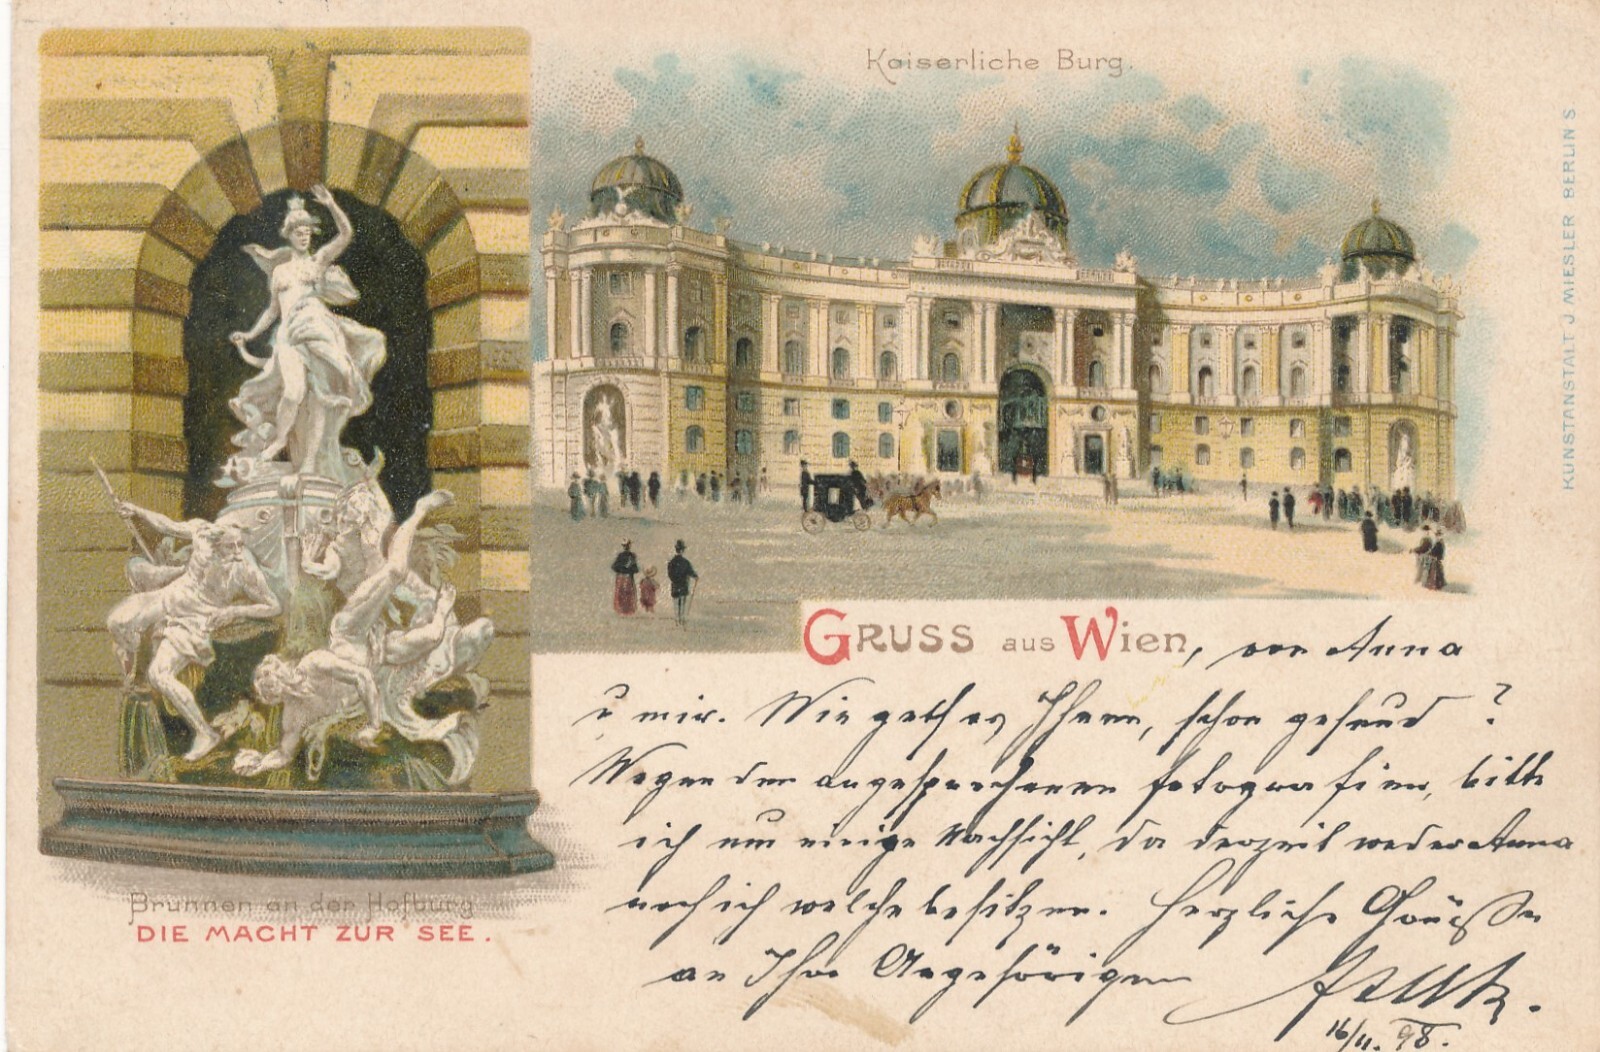 Kaiserliche Burg.
KUNSTANSTALT J MIESLER BERLIN S
GRUSS aus Wien, von Anna
u mir. Wie geht es Ihnen, schon gesund ?
Wegen den angesprochenen fotografien, bitte
ich um einige Nachsicht, da derzeit weder Anna
noch ich welche besitzen. Herzliche Grüße
an Ihre Angehörigen
16/11. 98.
Brunnen an der Hofburg
DIE MACHT ZUR SEE.